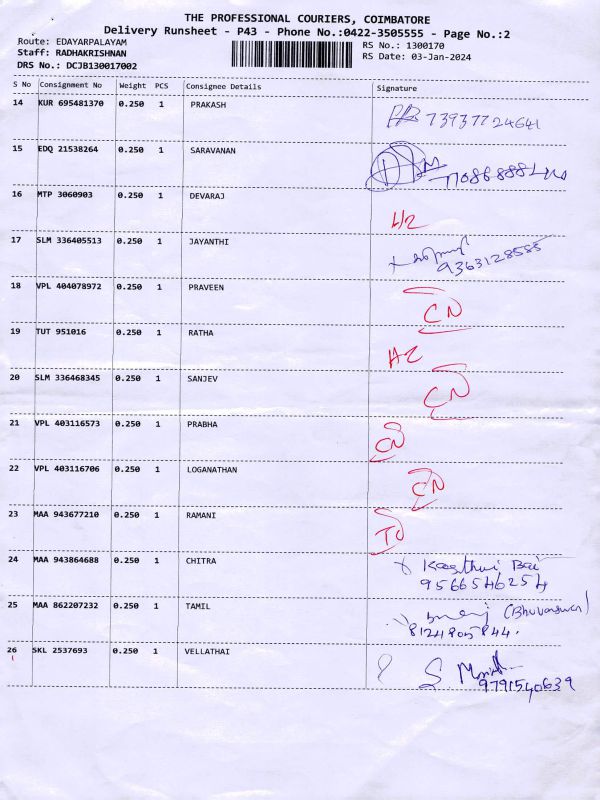 THE PROFESSIONAL COURIERS, COIMBATORE
Delivery Runsheet - P43 - Phone No.:0422-3505555 - Page No.:2
Route: EDAYARPALAYAM RS No.: 1300170
Staff: RADHAKRISHNAN RS Date: 03-Jan-2024
DRS No.: DCJB130017002
S No Consignment No Weight PCS Consignee Details Signature
14 KUR 695481370 0.250 1 PRAKASH 73937724641
15 EDQ 21538264 0.250 1 SARAVANAN
16 MTP 3060903 0.250 1 DEVARAJ
17 SLM 336405513 0.250 1 JAYANTHI 9363128585
18 VPL 404078972 0.250 1 PRAVEEN CN
19 TUT 951016 0.250 1 RATHA
20 SLM 336468345 0.250 1 SANJEV CN
21 VPL 403116573 0.250 1 PRABHA CN
22 VPL 403116706 0.250 1 LOGANATHAN CN
23 MAA 943677210 0.250 1 RAMANI
24 MAA 943864688 0.250 1 CHITRA Kasthuri Bai
9566546254
25 MAA 862207232 0.250 1 TAMIL
8124805844.
26 SKL 2537693 0.250 1 VELLATHAI
9791540639